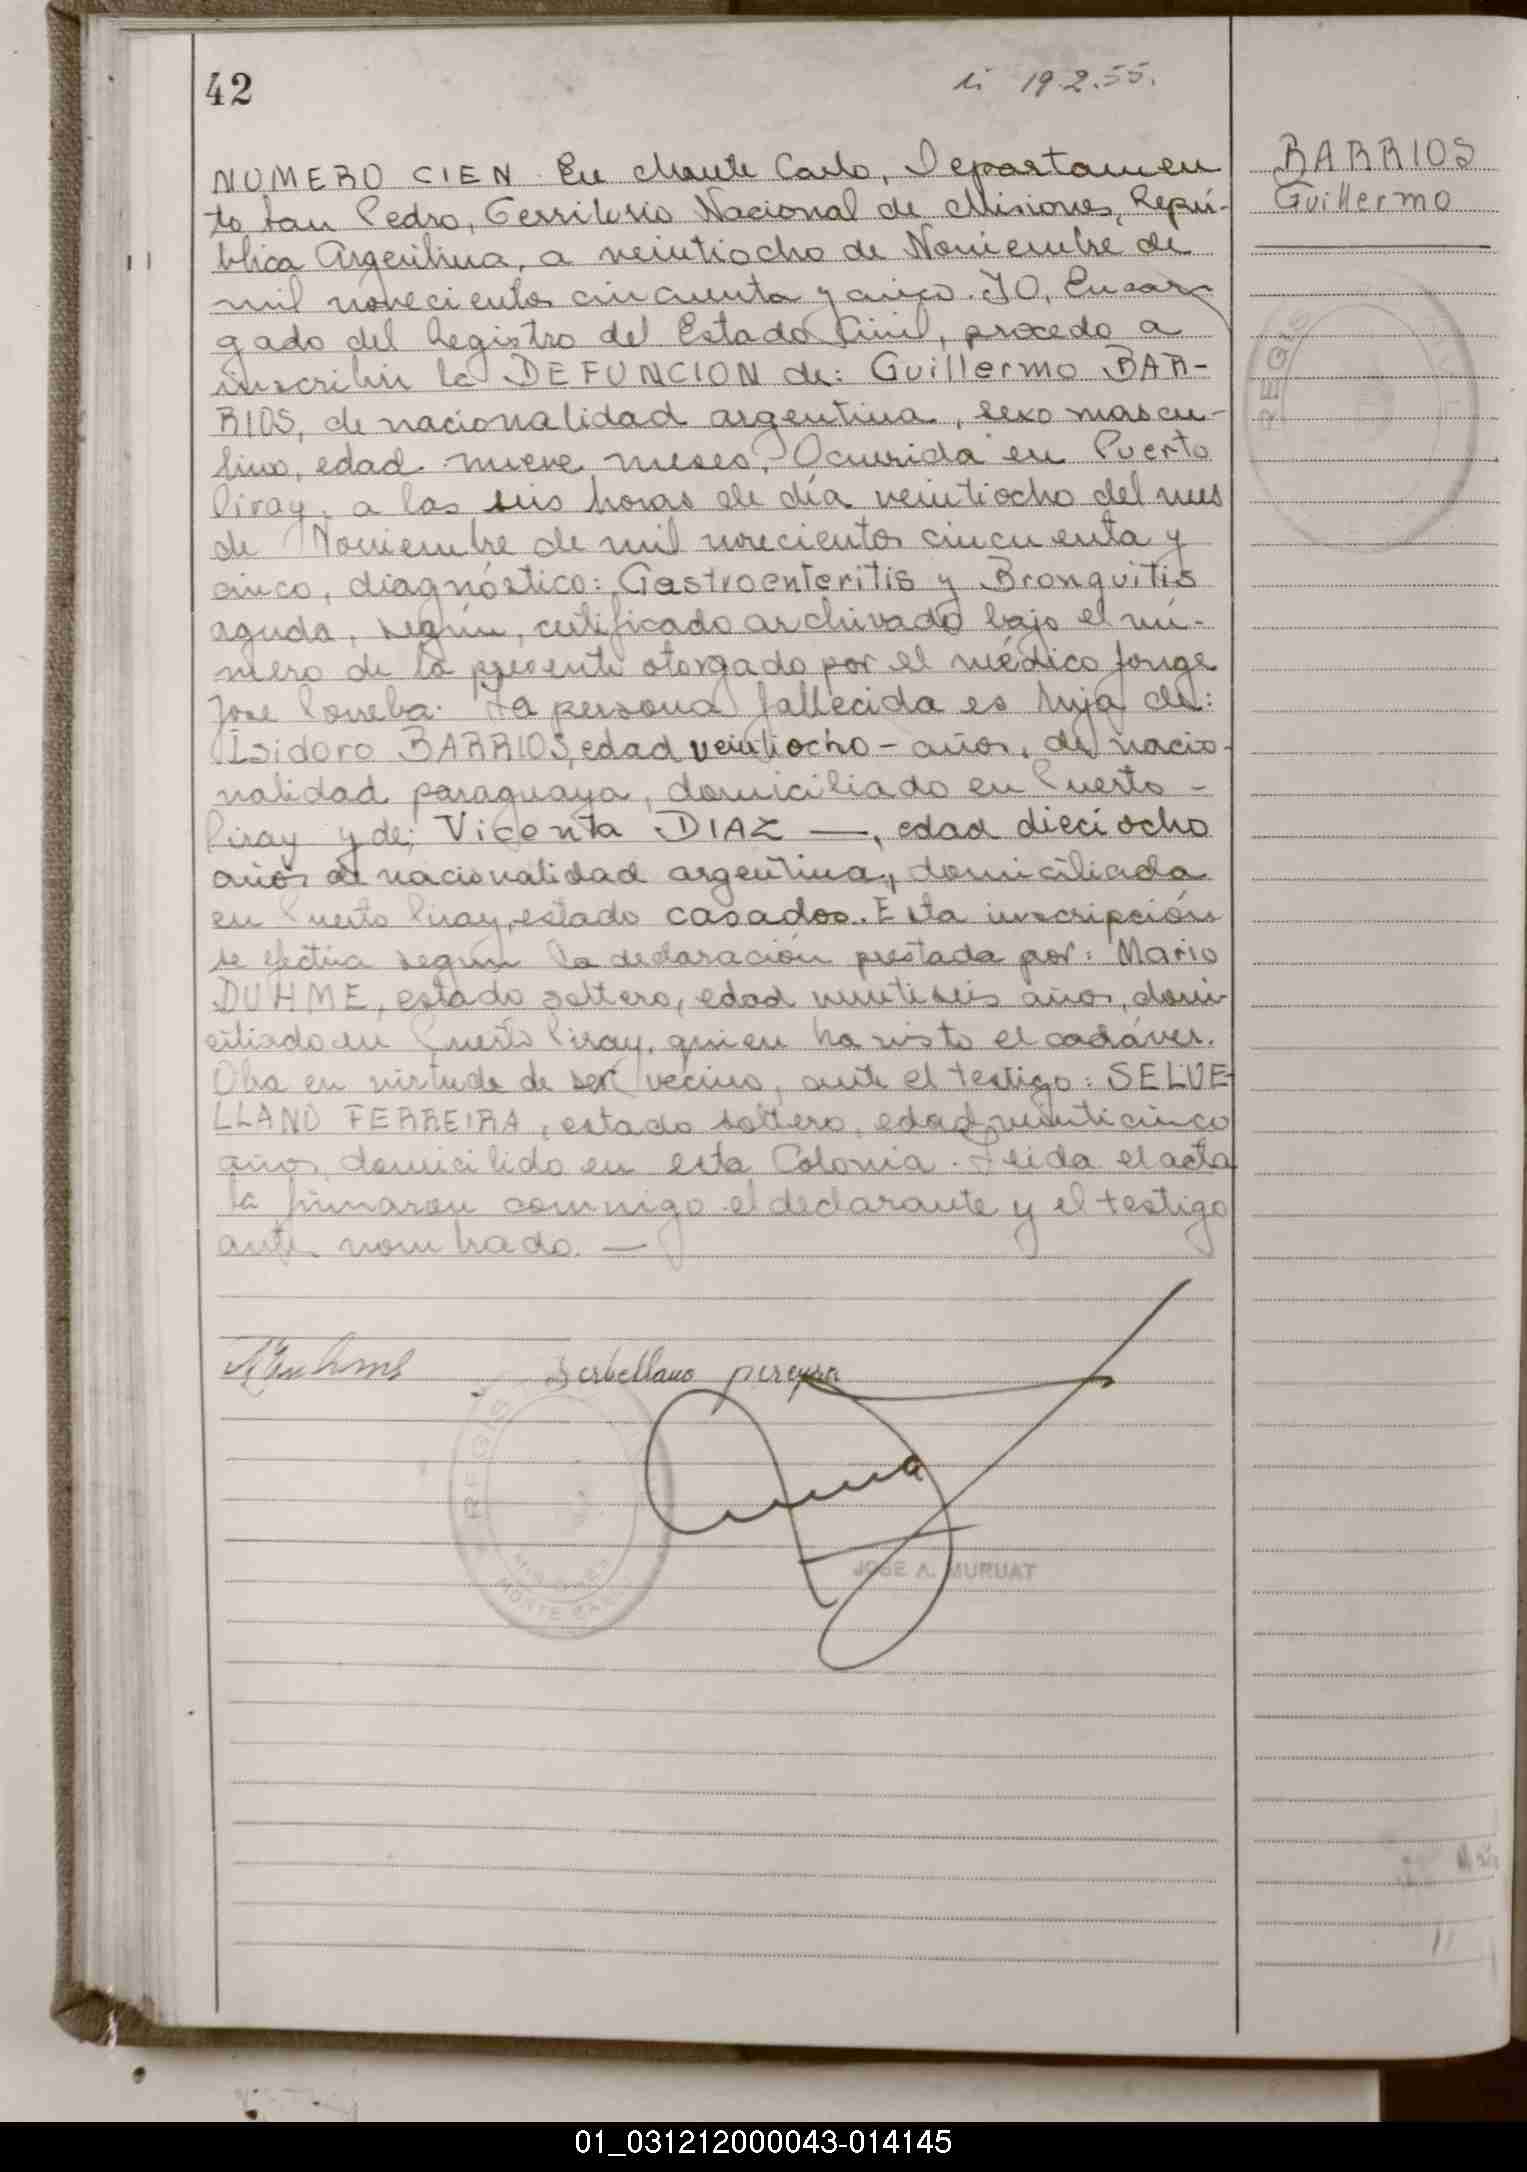 42
19.2.55.
BARRIOS
Guillermo
NUMERO CIEN. En Monte Carlo, Departamen
to San Pedro, Territorio Nacional de Misiones, Repú-
blica Argentina, a veintiocho de Noviembre de
mil novecientos cincuenta y cinco. YO, Encar
gado del Registro del Estado Civil, procedo a
inscribir la DEFUNCION de: Guillermo BAR-
RIOS, de nacionalidad argentina, sexo mascu-
lino, edad nueve meses, Ocurrida en Puerto
Piray, a las seis horas de día veintiocho del mes
de Noviembre de mil novecientos cincuenta y
cinco, diagnóstico: Gastroenteritis y Bronquitis
aguda, según, certificado archivado bajo el nú-
mero de la presente otorgado por el médico Jorge
José. La persona fallecida es hija de:
Isidoro BARRIOS, edad veintiocho - años, de nacio-
nalidad paraguaya, domiciliado en Puerto -
Piray y de; Vicenta DIAZ —, edad dieciocho
años de nacionalidad argentina, domiciliada
en Puerto Piray, estado casados. Esta inscripción
se efectúa según la declaración prestada por: Mario
DUHME, estado soltero, edad veintiseis años, domi-
ciliado en Puerto Piray, quien ha visto el cadáver.
Oba en virtude de ser vecino, ante el testigo: SELVE-
LLANO FERREIRA, estado soltero, edad veinticinco
años, domicilido en esta Colonia. Leida el acta
la firmaron conmigo el declarante y el testigo
ante nombrado. —
Serbellano pereyra
REGIS
MISIONES
MONTE CARLO
JOSE A. MURUAT
REGIS
01_031212000043-014145